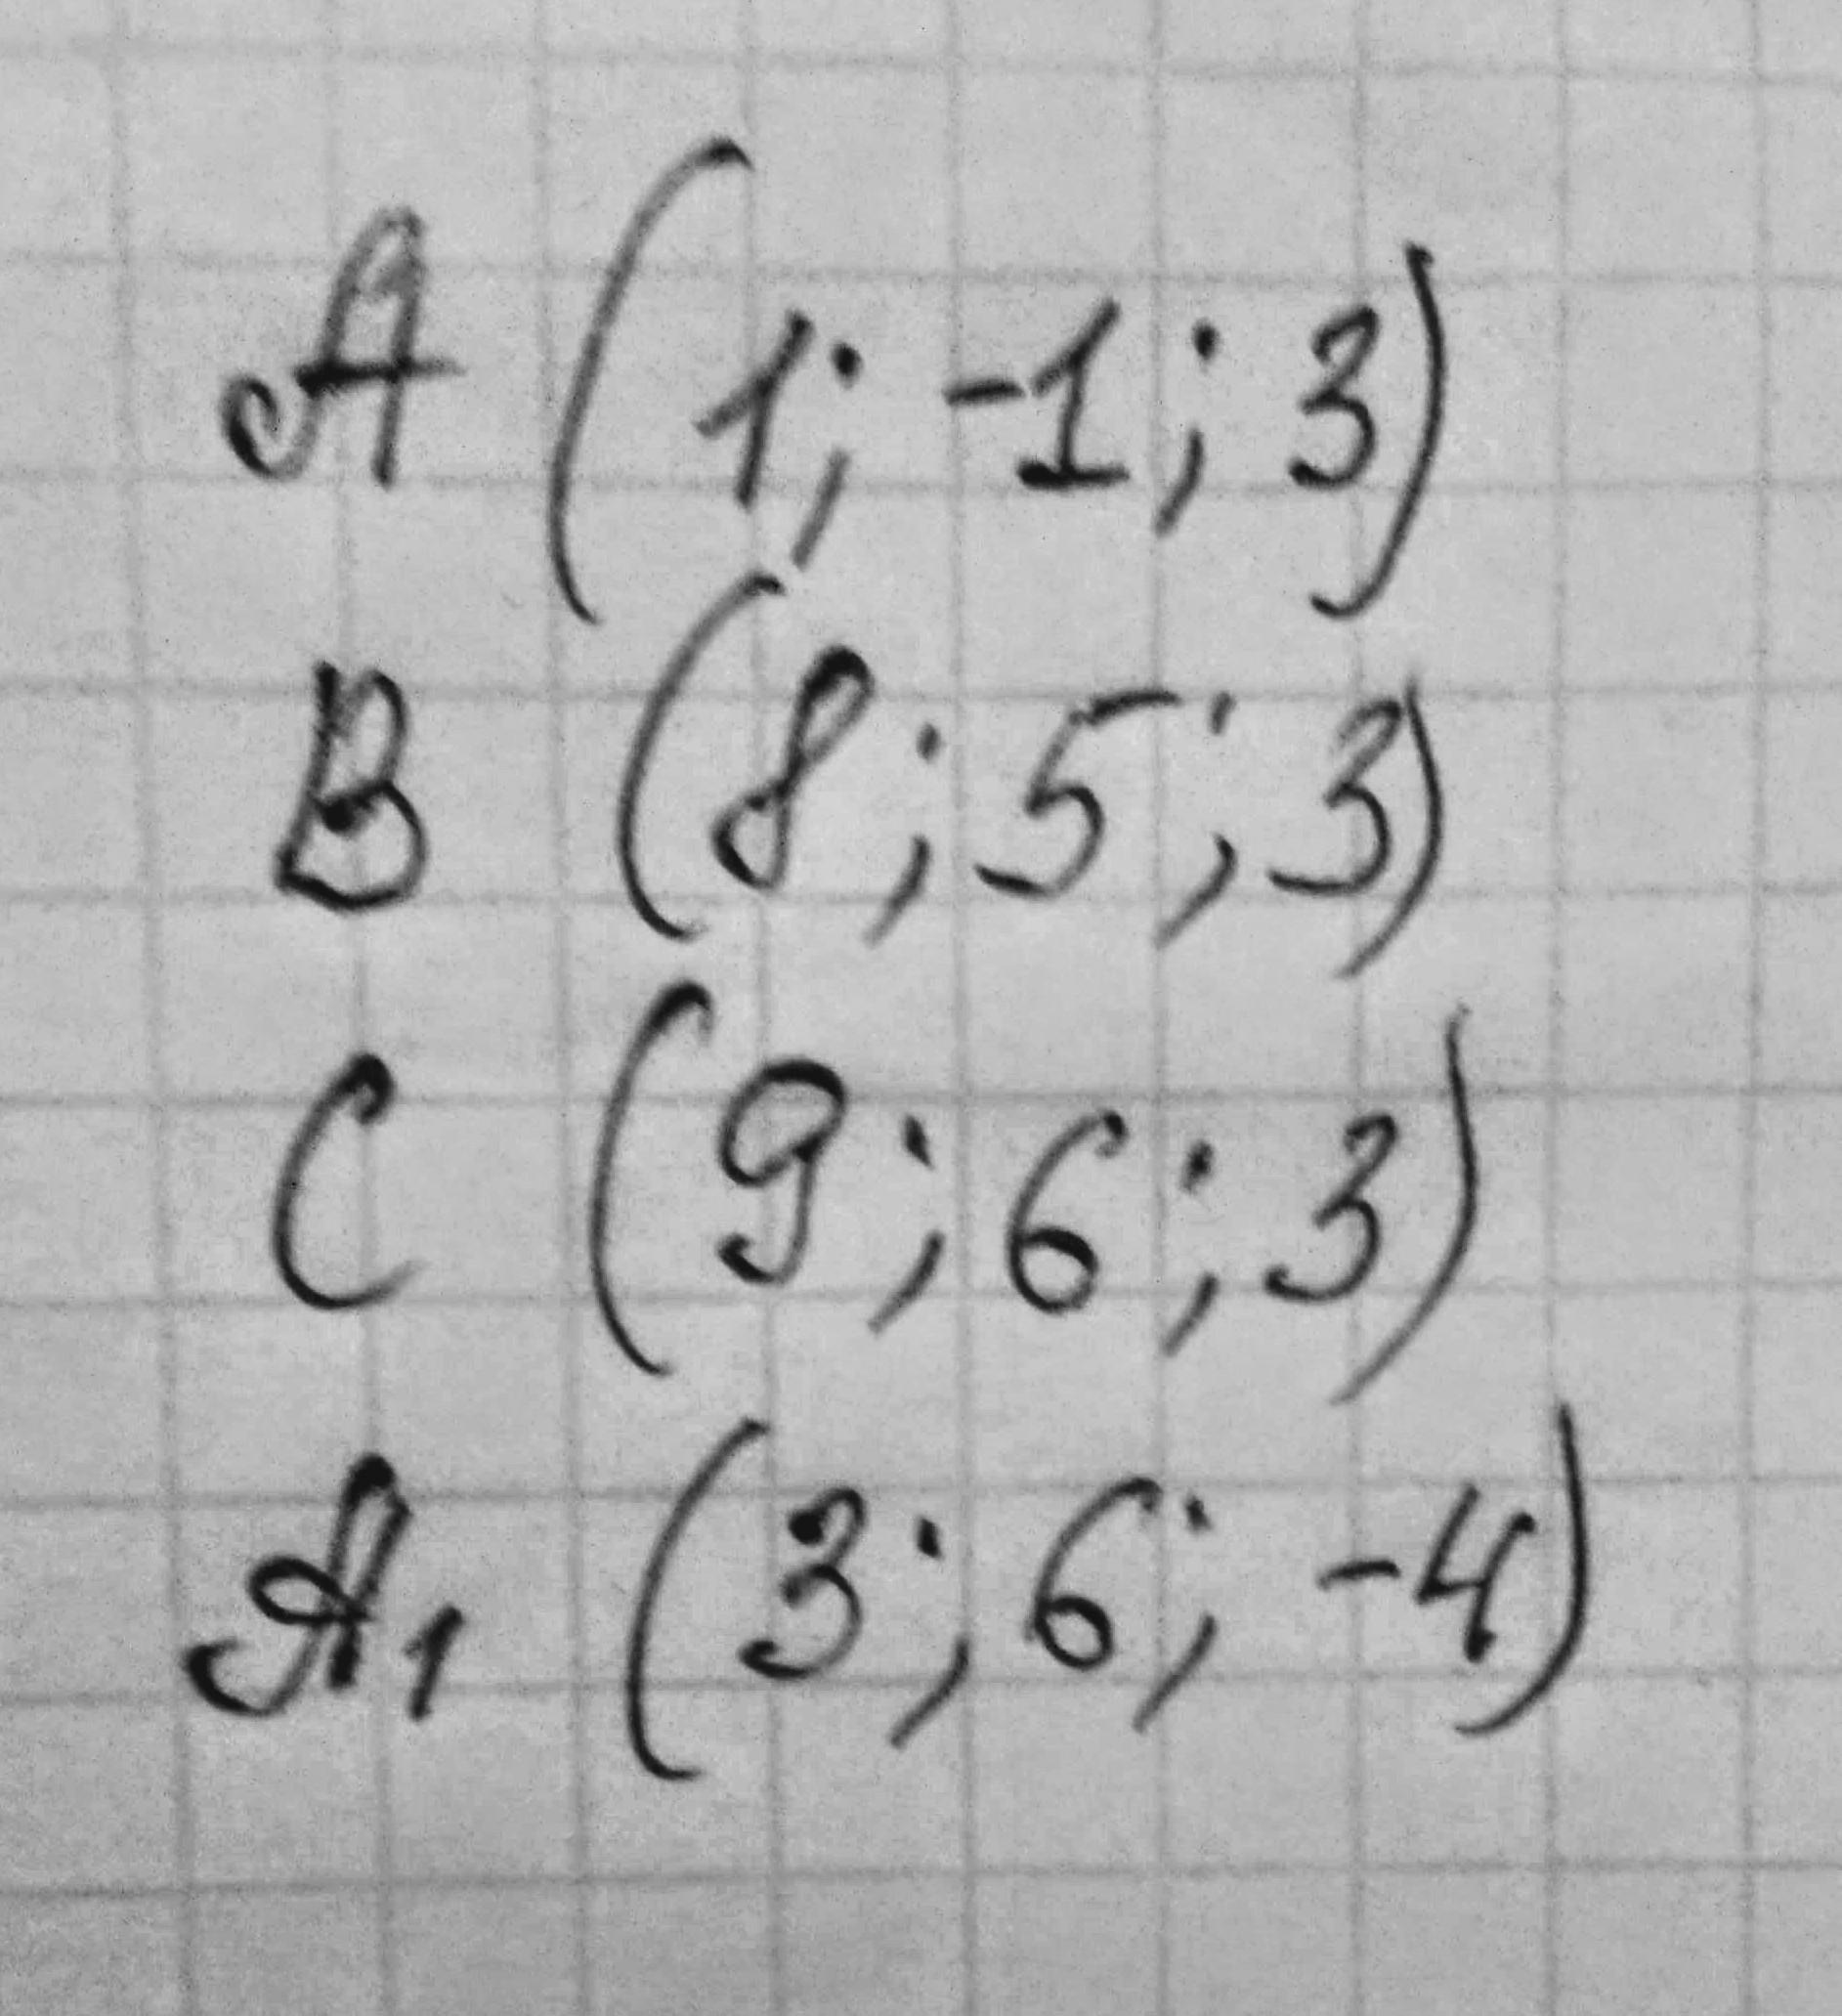 A (1; -1; 3)
B (8; 5; 3)
C (9; 6; 3)
A₁ (3; 6; -4)